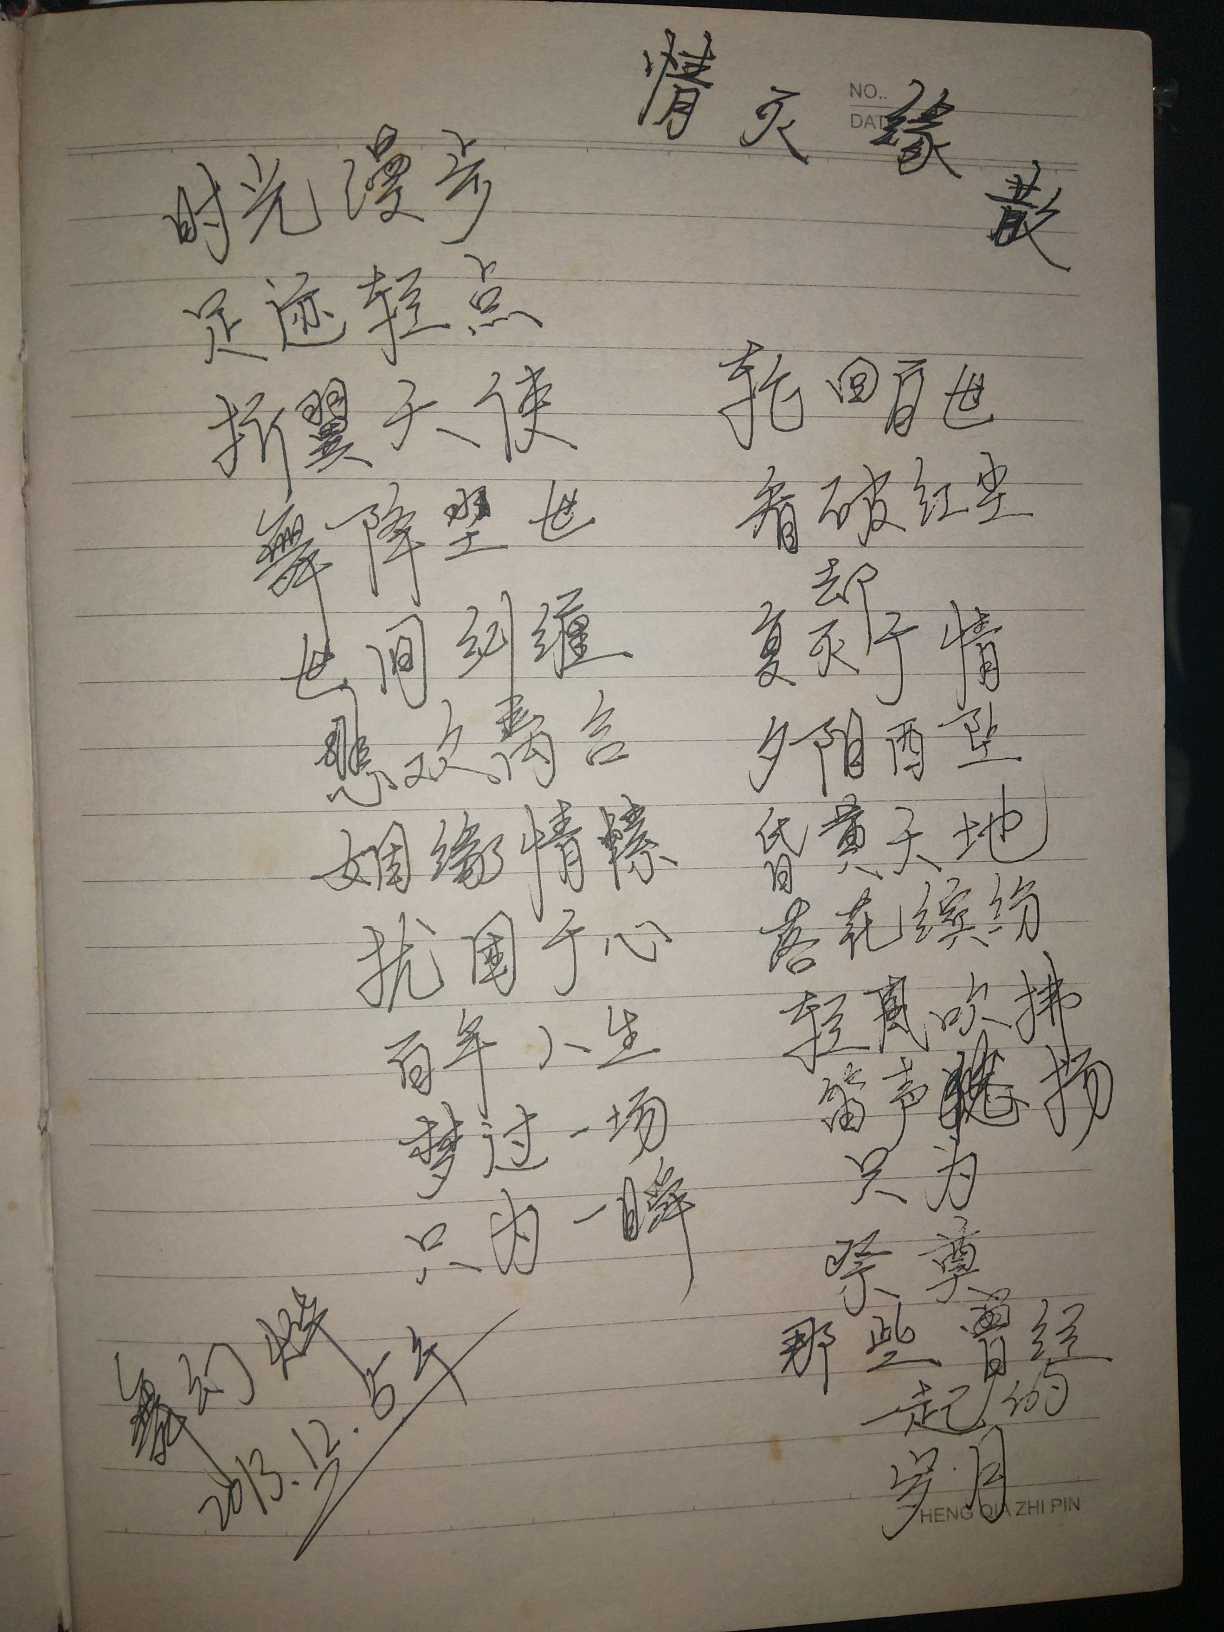 情灭缘散
NO..
时光漫步
足迹轻点
折翼天使
舞降堊世
世间纠缠
悲欢离合
姻缘情缘
扰困于心
百年人生
梦过一场
只为一瞬
轮回百世
看破红尘
却
复灭于情
夕阳西坠
昏黄天地
落花缤纷
轻风吹拂
笛声 扬
只为
祭奠
那些曾经
一起的
岁月
幻
2013.12.
HENG QIA ZHI PIN